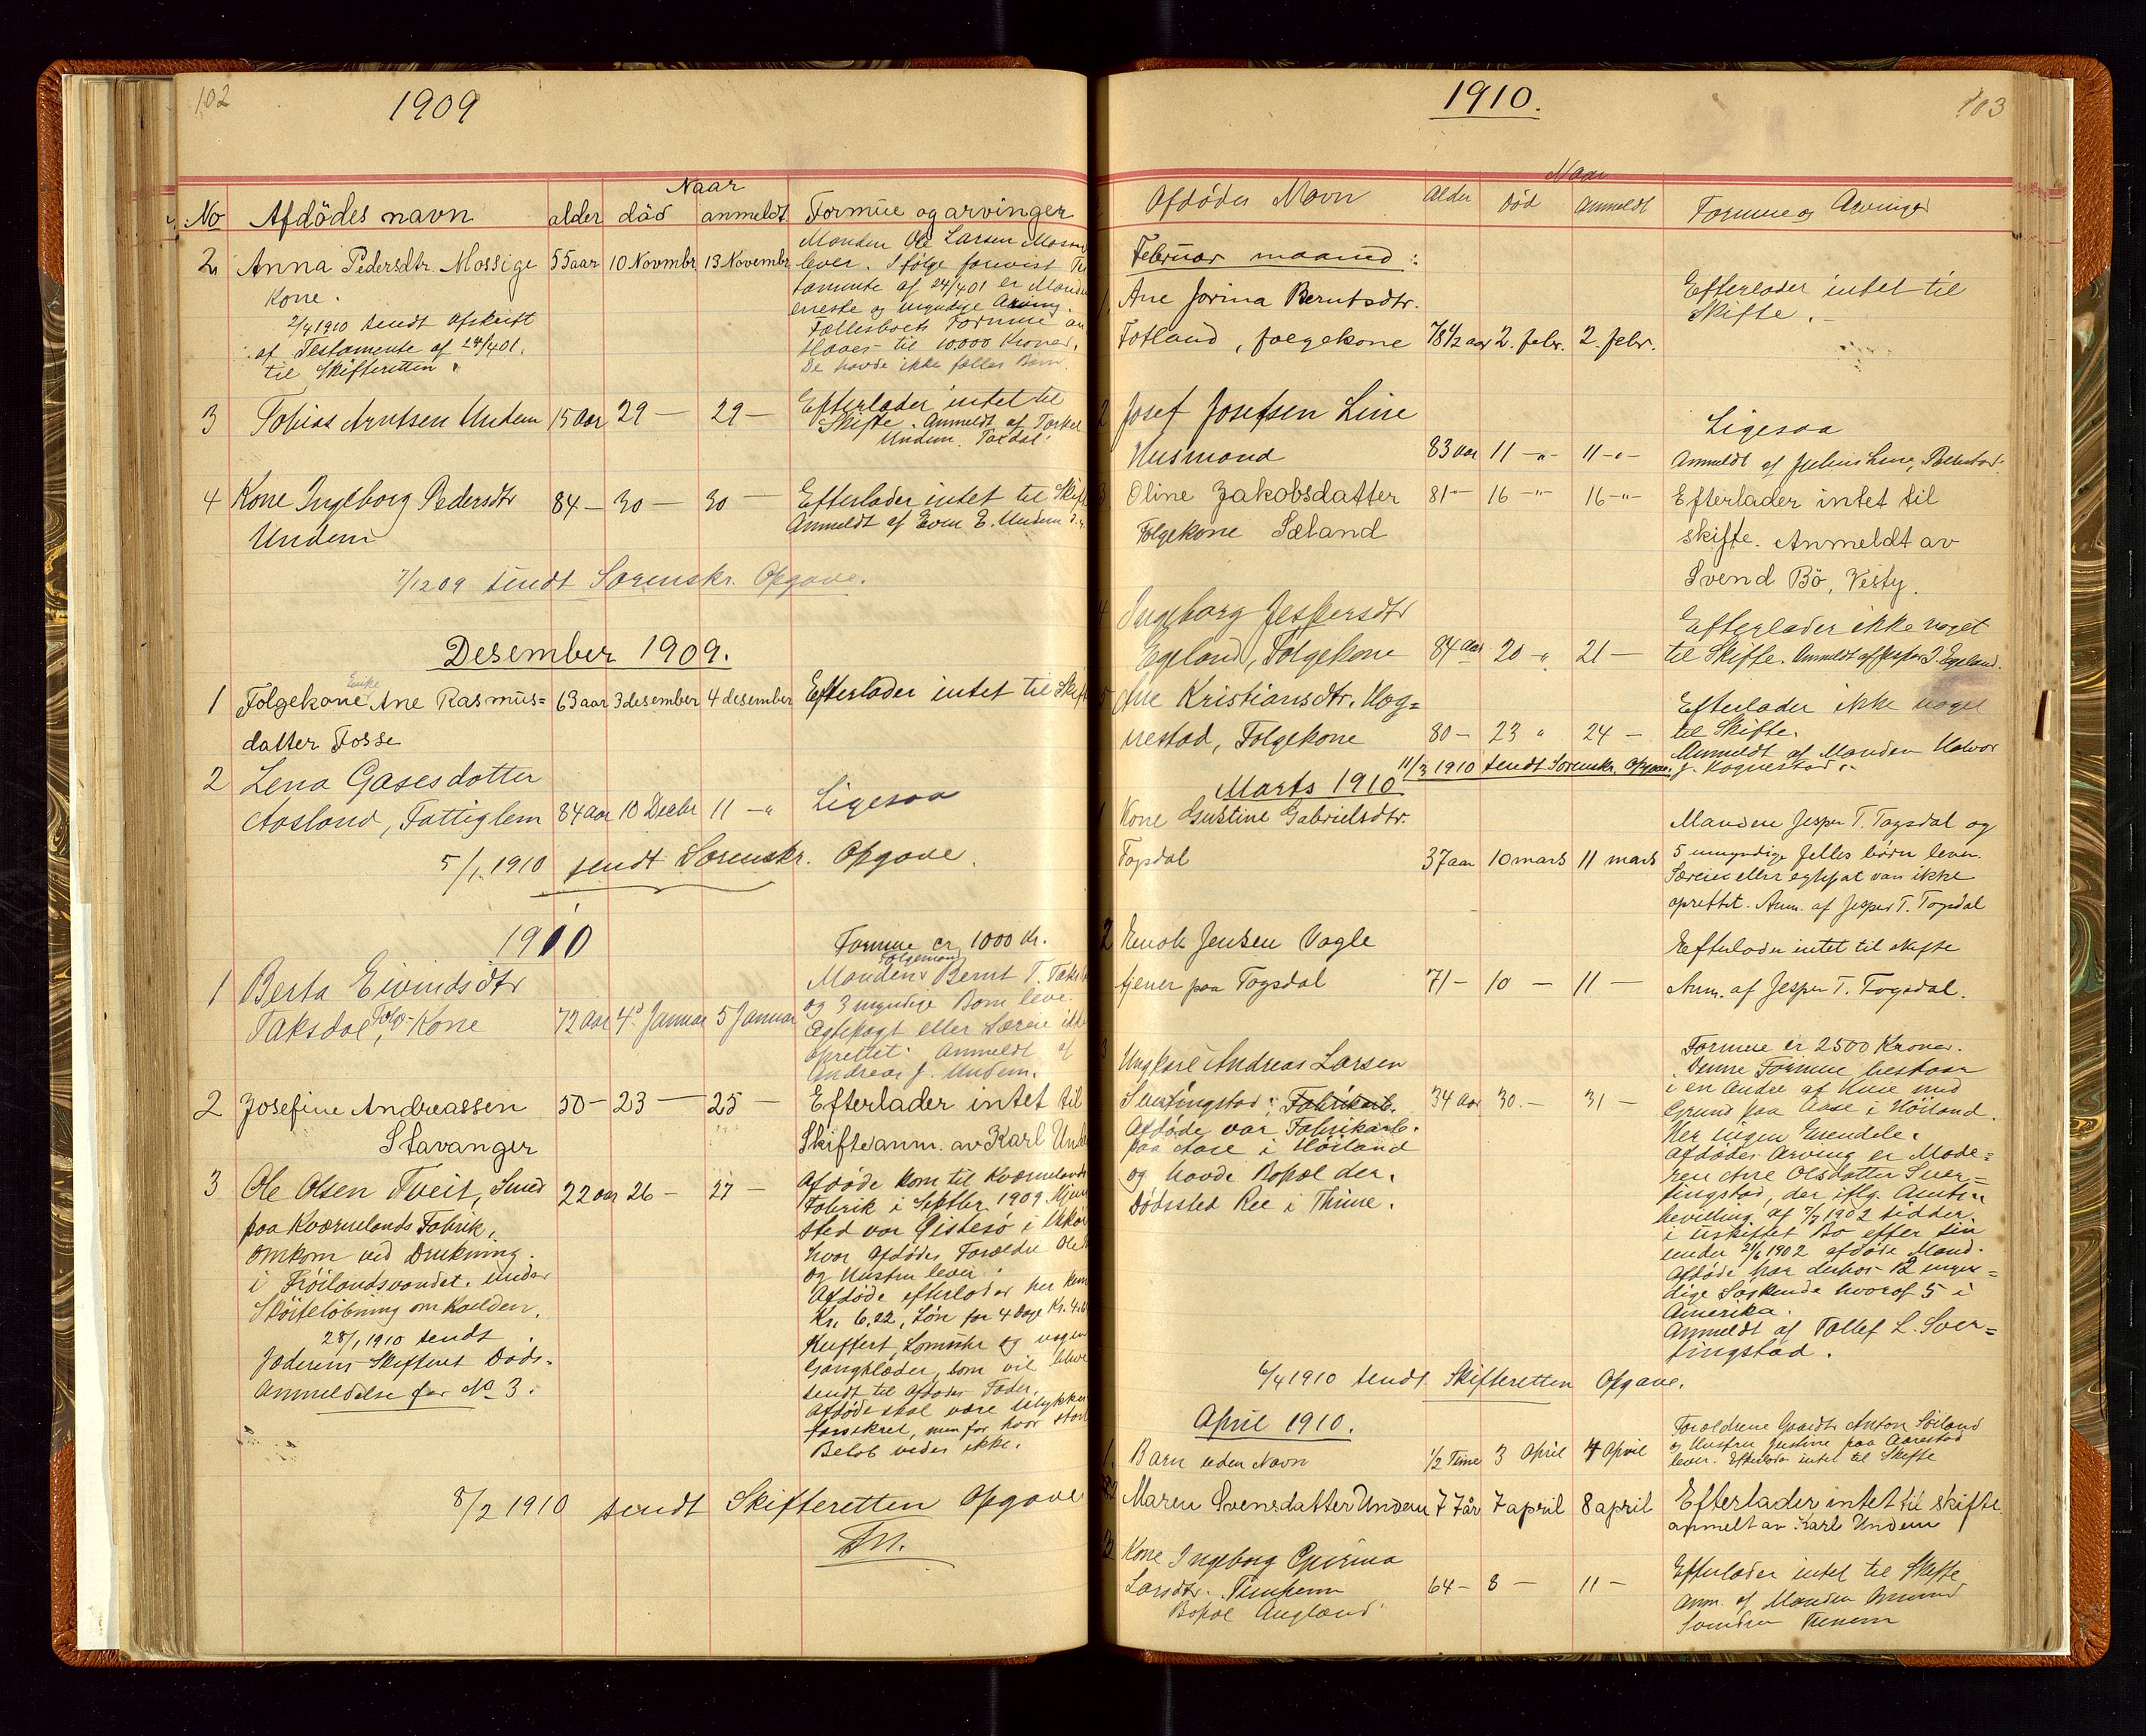 102
1909
No Afdödes navn alder Naar död anmeldt Formue og arvinger
2 Anna Pedersdtr. Mossige 55 aar 10 Novmbr 13 Novembr
Kone.
2/4 1910 sendt Afskrift
af Testamente af 24/4 01.
til Skifteretten.
Manden Ole Larsen
lever. Ifølge forevist
tamente af 24/4 01 er
eneste og myndige Arving.
Fællesboets Formue
til 10000 Kroner.
De havde ikke fælles Børn.
3 Tobias Arntsen Undem 15 aar 29 — 29 —
Efterlader intet til
Skifte. Anmeldt af Torkel
Undem
4 Kone Ingeborg Pedersdtr 84 — 30 — 30 —
Undem
Efterlader intet til
Anmeldt af Even E. Undem
7/12 09 sendt Sorenskr. Opgave.
Desember 1909.
1 Folgekone Enke Ane Rasmus= 63 aar 3 desember 4 desember Efterlader intet til
datter Fosse
2 Lena Gasesdatter
Aasland, Fattiglem 84 aar 10 Decbr 11 — " Ligesaa
5/1 1910 sendt Sorenskr. Opgave.
1910
1 Berta Eivindsdtr
Taksdal, Folge-Kone 72 aar 4 Januar 5 Januar
Formue er 1000 Kr.
Folgemand
Manden Bernt T.
og 3 myndige Born leve.
Ægtepagt eller Særeie
oprettet. Anmeldt af
Andreas J. Undem.
2 Josefine Andreassen 50 — 23 — 25 —
Stavanger
Efterlader intet til
Skifte anm. av Karl
3 Ole Olsen Tveit, Smed 22 aar 26 — 27 —
paa Kværnelands Fabrik,
omkom ved Drukning
i Frøilandsvandet under
Skøiteløbning om Kvelden.
28/1 1910 sendt
Jæderens Skifteret Døds=
Anmeldelse for No 3.
Afdøde kom til Kværnelands
Fabrik i Septbr. 1909.
sted var i
hvor Afdødes Forældre
og Hustru lever.
Afdøde efterlader her
Kr. 6.22, Løn for 4 Dage
Kuffert, Lommeuhr og
Gangklæder, som vil
sendt til Afdødes Fader.
Afdøde skal være
forsikret, men for hvor
Beløb vides ikke.
8/2 1910 sendt Skifteretten Opgave
1910.
103
Afdødes Navn Alder Naar Død Anmeldt Formue og Arvinger
Februar maaned:
1. Ane Jorina Berntsdtr.
Fotland, folgekone 78 1/2 aar 2. febr. 2. febr.
Efterlader intet til
Skifte.
2 Josef Josefsen Line
Husmand 83 aar 11 — " — 11 — " —
Ligesaa
Anmeldt af Julius Line
3 Oline Jakobsdatter 81 — 16 — " — 16 — " —
Folgekone Sæland
Efterlader intet til
skifte. Anmeldt av
Svend Bö, Vesty.
4 Ingeborg Jespersdtr
Egeland, Folgekone 84 aar 20 — " 21 —
Efterlader ikke noget
til Skifte. Anmeldt af Jesper J. Egeland.
5 Ane Kristiansdtr. Hog=
nestad, Folgekone 80 — 23 " 24 —
Efterlader ikke noget
til Skifte.
Anmeldt af Manden Halvor
J. Hognestad.
11/3 1910 sendt Sorenskr. Opgave.
Marts 1910
1 Kone Gustine Gabrielsdtr.
Togsdal 37 aar 10 mars 11 mars
Manden Jesper T. Togsdal og
5 umyndige felles börn lever.
Særeie eller egtepat var ikke
oprettet. Anm. af Jesper T. Togsdal
2 Enok Jensen Vagle
tjener paa Togsdal 71 — 10 — 11 —
Efterlader intet til skifte
Anm. af Jesper T. Togsdal.
3 Ungkarl Andreas Larsen
Svertingstad, Fabrikarb. 34 aar 30. — 31 —
Afdøde var Fabrikarb.
paa Aase i Høiland
og havde Bopæl der.
Dødssted Ree i Thime.
Formue er 2500 Kroner.
Denne Formue bestaar
i en Andre af Huse med
Grund paa Aase i Höiland.
Her ingen Eiendele.
Afdødes Arving er Mode=
ren Ane Olsdatter Sver=
tingstad, der iflg. Amts=
bevilling af 7/7 1902 sidder
i uskiftet Bo efter sin
under 21/6 1902 afdøde Mand.
Afdøde har derhos 12 myn=
dige Søskende hvoraf 5 i
Amerika.
Anmeldt af Tollef L. Sver=
tingstad.
6/4 1910 sendt Skifteretten Opgave.
April 1910.
1. Barn uden Navn 1/2 Time 3 April 4 April
Forældrene Gaardbr. Anton
og Hustru Justine paa Aarestad
lever. Efterlader intet til Skifte
2 Maren Svensdatter Undem 77 år 7 april 8 april
Efterlader intet til skifte
anmelt av Karl Undem
3 Kone Ingeborg
Larsdtr. 64 — 8 — 11 —
Bopæl
Efterlader intet til Skifte
anm. af Manden